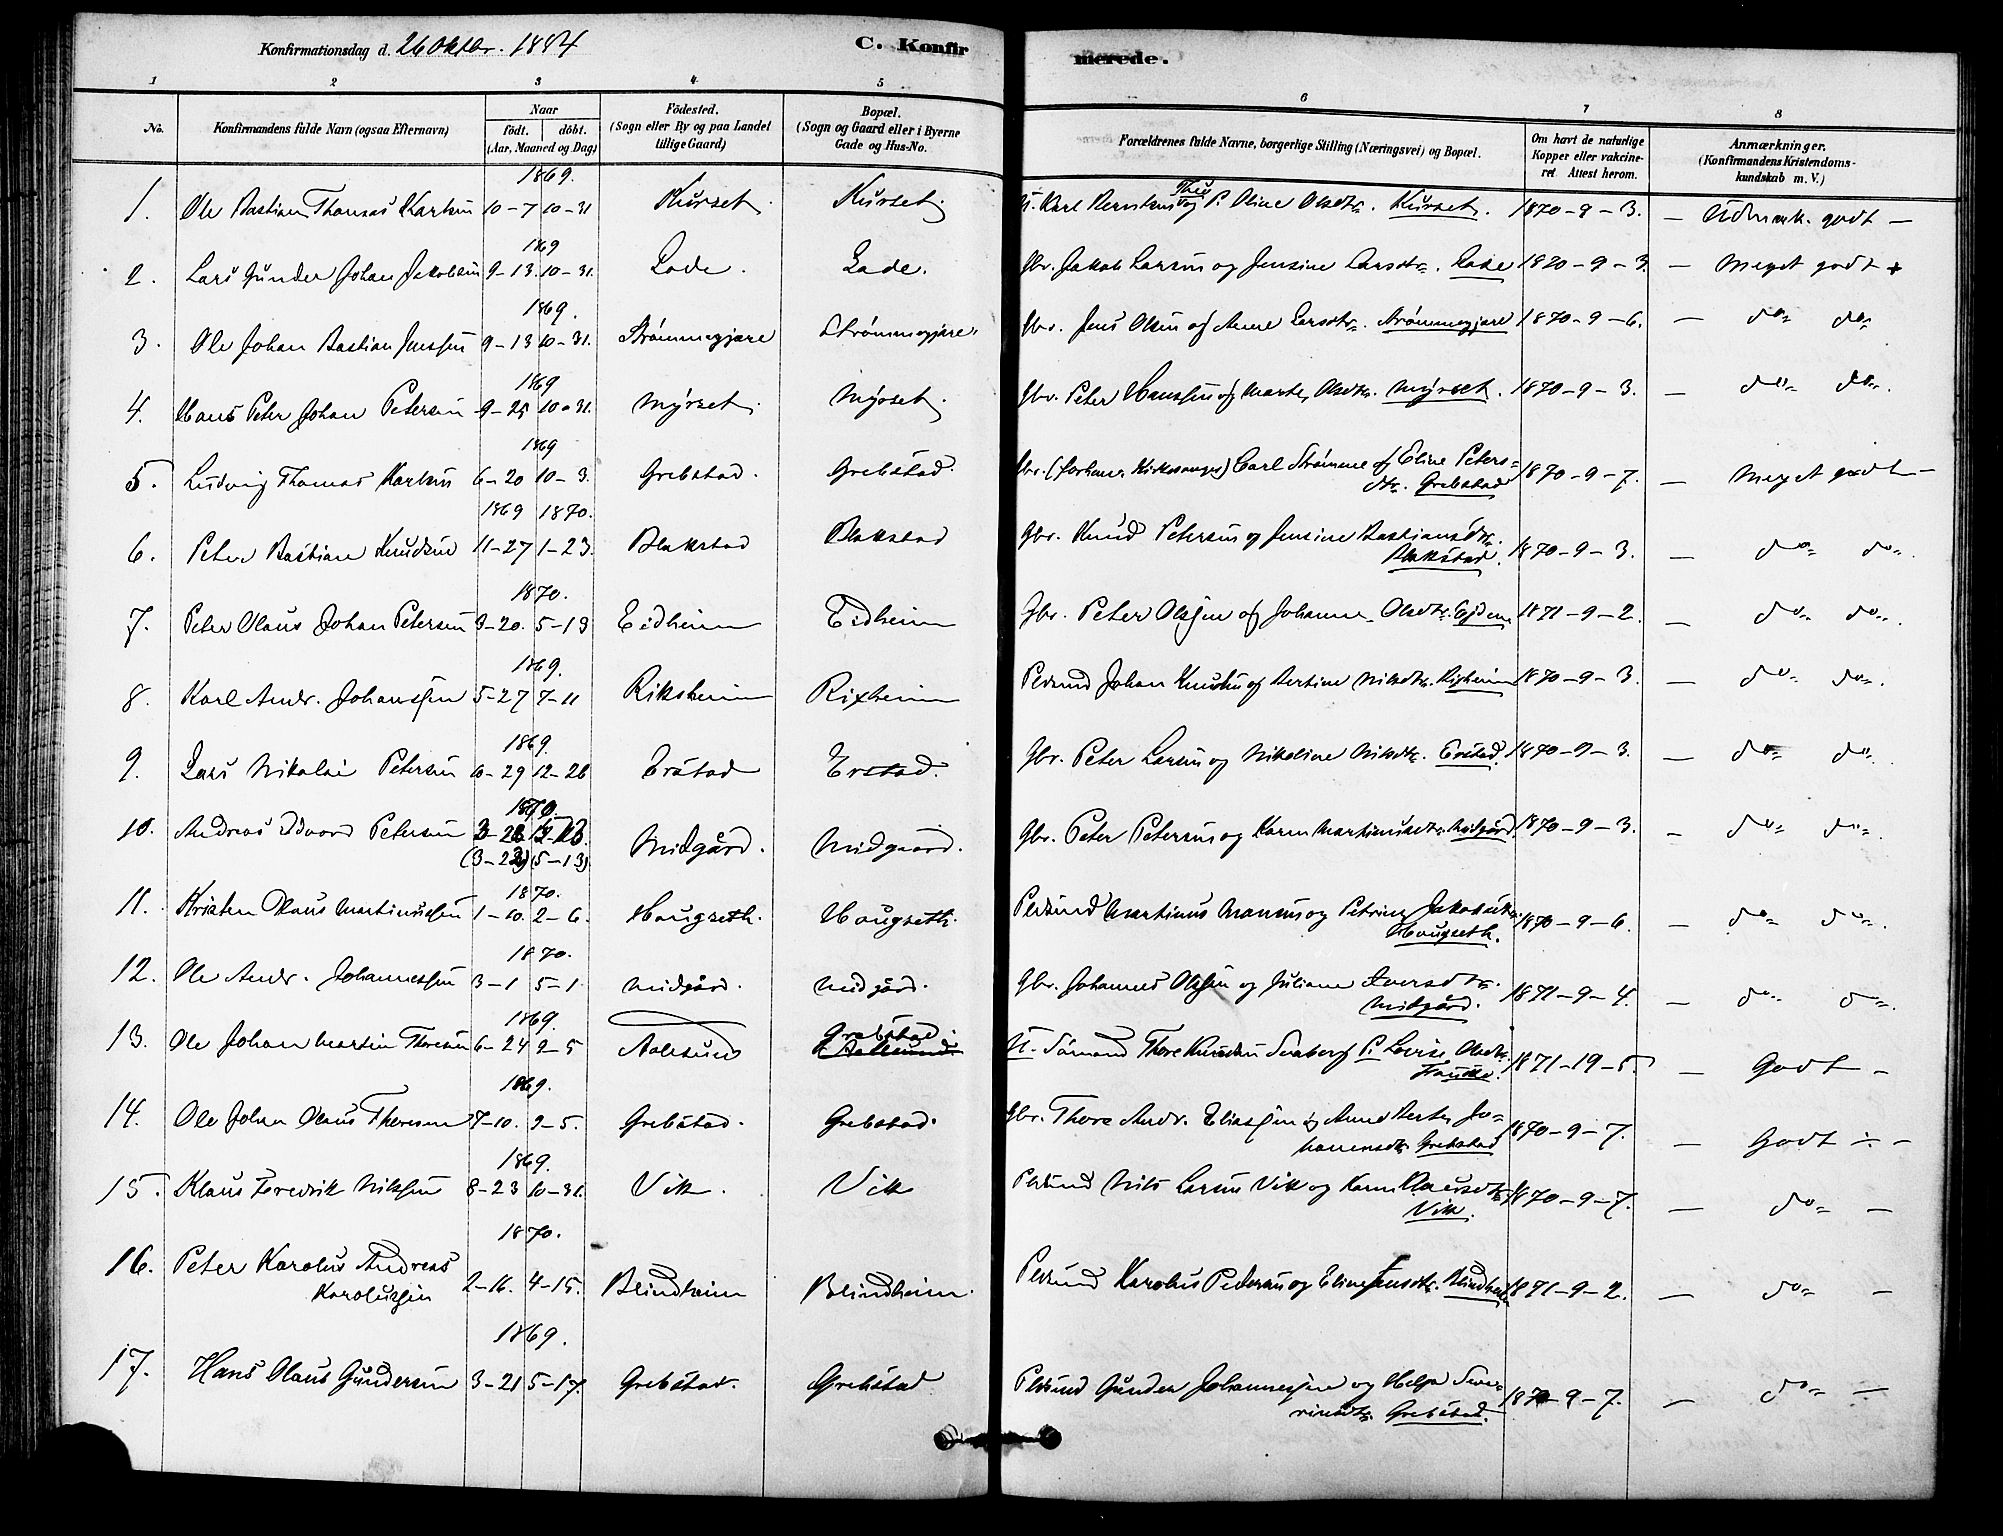 Konfirmationsdag d. 26 Oktbr. 1884
C. Konfirmerede.
1 2 3 4 5 6 7 8
No.
Konfirmandens fulde Navn (ogsaa Efternavn)
Naar
født. døbt.
(Aar, Maaned og Dag)
Fødested.
(Sogn eller By og paa Landet
tillige Gaard)
Bopæl.
(Sogn og Gaard eller i Byerne
Gade og Hus-No.
Forældrenes fulde Navne, borgerlige Stilling (Næringsvei) og Bopæl.
Om havt de naturlige
Kopper eller vakcine-
ret Attest herom.
Anmærkninger.
(Konfirmandens Kristendoms-
kundskab m. V.)
1869.
1. Ole Bastian Thomas Karlsen 10-7 10-31 Kurset. Kurset. U. Karl og P. Oline Olsdtr. Kurset. 1870-9-3. — Udmærk. godt —
1869
2. Lars Gunder Johan Jakobsen 9-13. 10-31. Lade. Lade. Gbr. Jakob Larsen og Jensine Larsdtr. Lade 1820-9-3. — Meget godt +
1869.
3. Ole Johan Bastian Jenssen 9-13 10-31. Strømmegjære Strømmegjære. Gbr. Jens Olsen og Anne Larsdtr. Strømmegjære 1870-9-6. — do do
1869
4. Hans Peter Johan Petersen 9-25 10-31. Myrset. Myrset. Gbr. Peter Hanssen og Marte Olsdtr. Myrset. 1870-9-3. — do do
1869
5. Ludvig Thomas Karlsen 6-20 10-3. Grebstad. Grebstad. Gbr. (forhenv. Kirkesanger) Carl Strømme og Eline Peters=
dtr. Grebstad 1870-9-7. — Meget godt —
1869 1870.
6. Peter Bastian Knudsen 11-27 1-23. Blakstad Blakstad Gbr. Knud Petersen og Jensine Bastiansdtr.
Blakstad. 1870-9-3. — do do
1870.
7. Peter Olaus Johan Petersen 3-20. 5-13 Eidheim Eidheim Gbr. Peter Olssen og Johanne Olsdtr. 1871-9-2. — do do
1869.
8. Karl Andr. Johanssen 5-27 7-11 Riksheim Rixheim Plsmd Johan Knudsen og Bertine Nilsdtr. Rixheim 1870-9-3. — do do
1869.
9. Lars Nikolai Petersen 29 12-26 Erstad Erstad. Gbr. Peter Larsen og Nikoline Nilsdtr. Erstad. 1870-9-3. — do do
1870.
10. Andreas Edvard Petersen
(3-23) (5-13) Midgård. Midgaard. Gbr. Peter Petersen og Karen Martinusdtr. Midgård. 1870-9-3. — do do
1870.
11. Kristen Olaus Martinussen 1-10. 2-6. Hougseth. Hougseth. Plsmd Martinus og Petrine Jakobsdtr.
Hougseth. 1870-9-6. — do do
1870.
12. Ole Andr. Johannessen 3-1 5-1 Midgård. Midgård. Gbr. Johannes Olssen og Juliane Iversdtr.
Midgård. 1871-9-4. — do do
1869.
13. Ole Johan Martin Thoresen 6-24 9-5 Aalesund Grebstad.
Aalesund U. Sømand Thore Knudsen og P. Lovise Olsdtr.
1871-19-5. — Godt —
1869.
14. Ole Johan Olaus Thoresen 7-10. 9-5. Grebstad. Grebstad. Gbr. Thore Andr. Eliassen og Anne Berte Jo=
hannesdtr. Grebstad 1870-9-7. — Godt ÷ —
1869.
15. Klaus Fredrik Nilssen 8-23 10-31. Vik. Vik Plsmd Nils Larsen Vik og Karen Klausdtr.
Vik. 1870-9-7. — do —
1870.
16. Peter Karolus Andreas
Karolussen 2-16. 4-15. Blindheim Blindheim. Plsmd Karolus Pedersen og Eline Jensdtr. Blindheim 1871-9-2. — do —
1869.
17. Hans Olaus Gundersen 3-21 5-17. Grebstad. Grebstad Plsmd Gunder Johannessen og Helga Seve=
rinsdtr. Grebstad. 1870-9-7. — do —